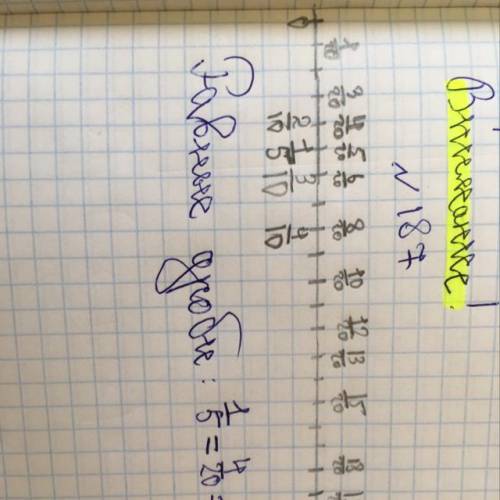 Внимание!
№ 187
0 1/20 3/20 4/20 5/20 6/20 8/20 10/20 12/20 13/20 15/20 18/20
2/10 1/5 3/10 4/10
Равные дроби: 1/5 = 4/20 =